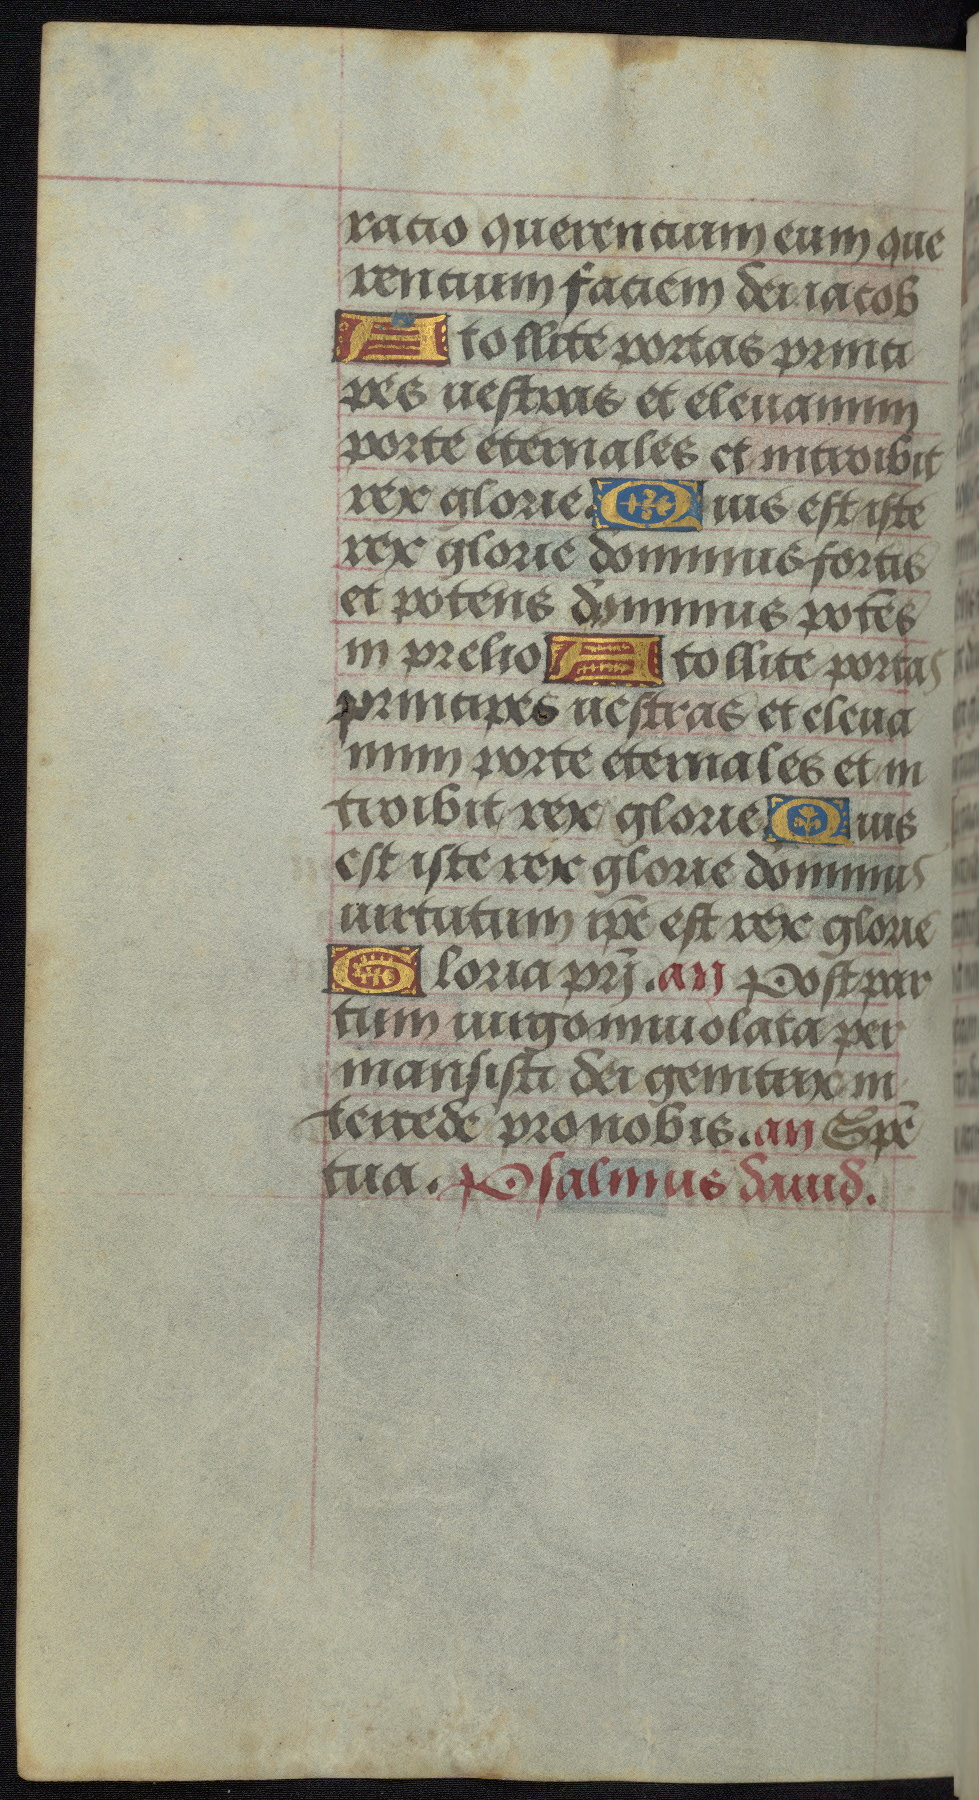 racio querencium eum que
rencium faciem dei iacob
Atollite portas princi
pes uestras et eleuamini
porte eternales et introibit
rex glorie. Quis est iste
rex glorie dominus fortis
et potens dominus potēs
in prelio Atollite portas
principes uestras et eleua
mini porte eternales et in
troibit rex glorie Quis
est iste rex glorie dominus
uirtutum ip̄e est rex glorie
Gloria pr̄j . an Post par
tum uirgo inuiolata per
mansisti dei genitrix in
tercede pro nobis . an Spē
tua . Psalmus dauid .